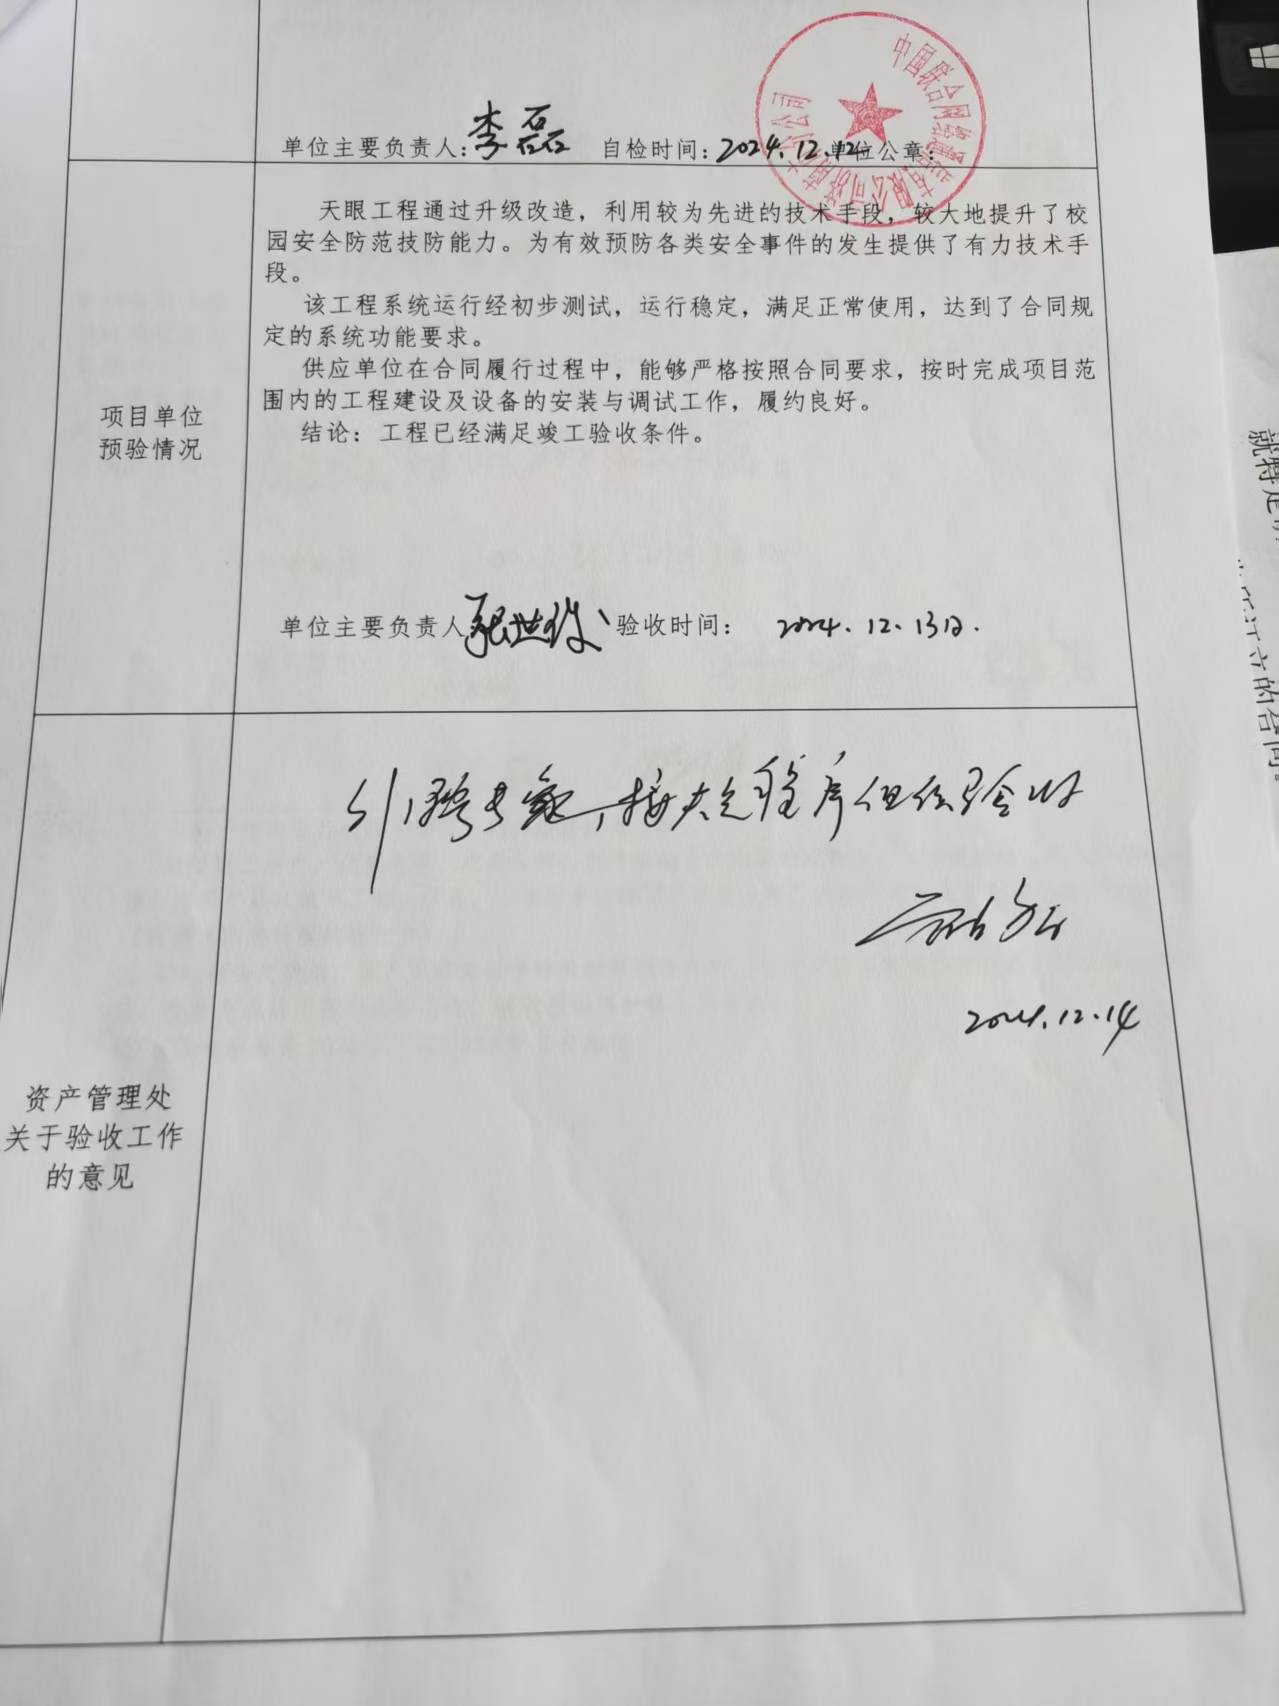 单位主要负责人：李磊 自检时间：2024.12.12 单位公章：
中国联合网络通信有限公司
分公司
天眼工程通过升级改造，利用较为先进的技术手段，较大地提升了校
园安全防范技防能力。为有效预防各类安全事件的发生提供了有力技术手
段。
该工程系统运行经初步测试，运行稳定，满足正常使用，达到了合同规
定的系统功能要求。
供应单位在合同履行过程中，能够严格按照合同要求，按时完成项目范
围内的工程建设及设备的安装与调试工作，履约良好。
结论：工程已经满足竣工验收条件。
项目单位
预验情况
单位主要负责人 验收时间： 2024.12.13日.
专家，按 程序组织验收
2024.12.14
资产管理处
关于验收工作
的意见
的合同。